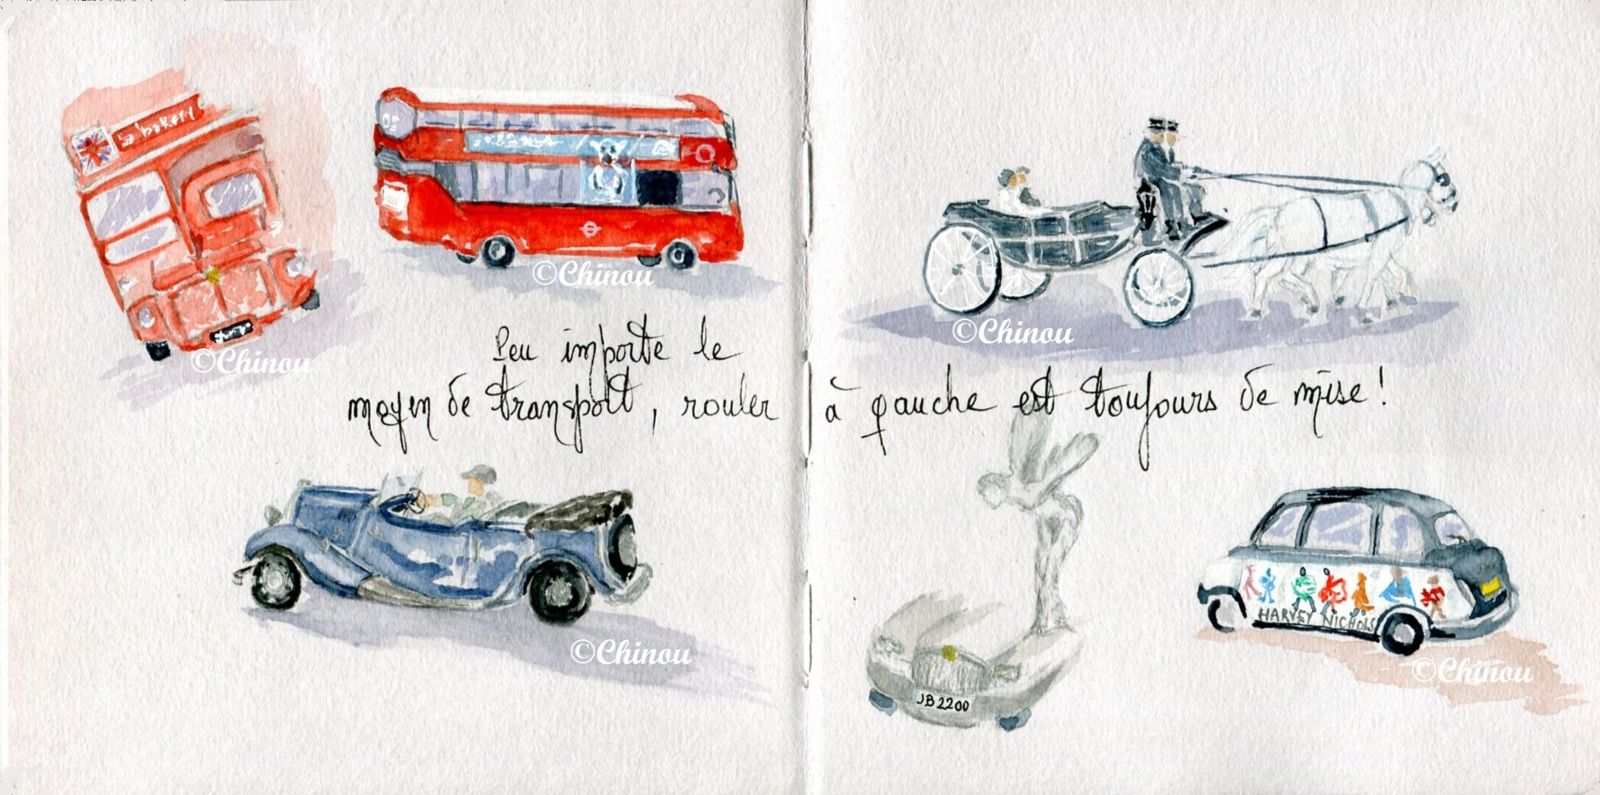 ©Chinou
©Chinou
©Chinou
Peu importe le
moyen de transport, rouler à gauche est toujours de mise !
HARVEY NICHOLS
JB 2200
©Chinou
©Chinou